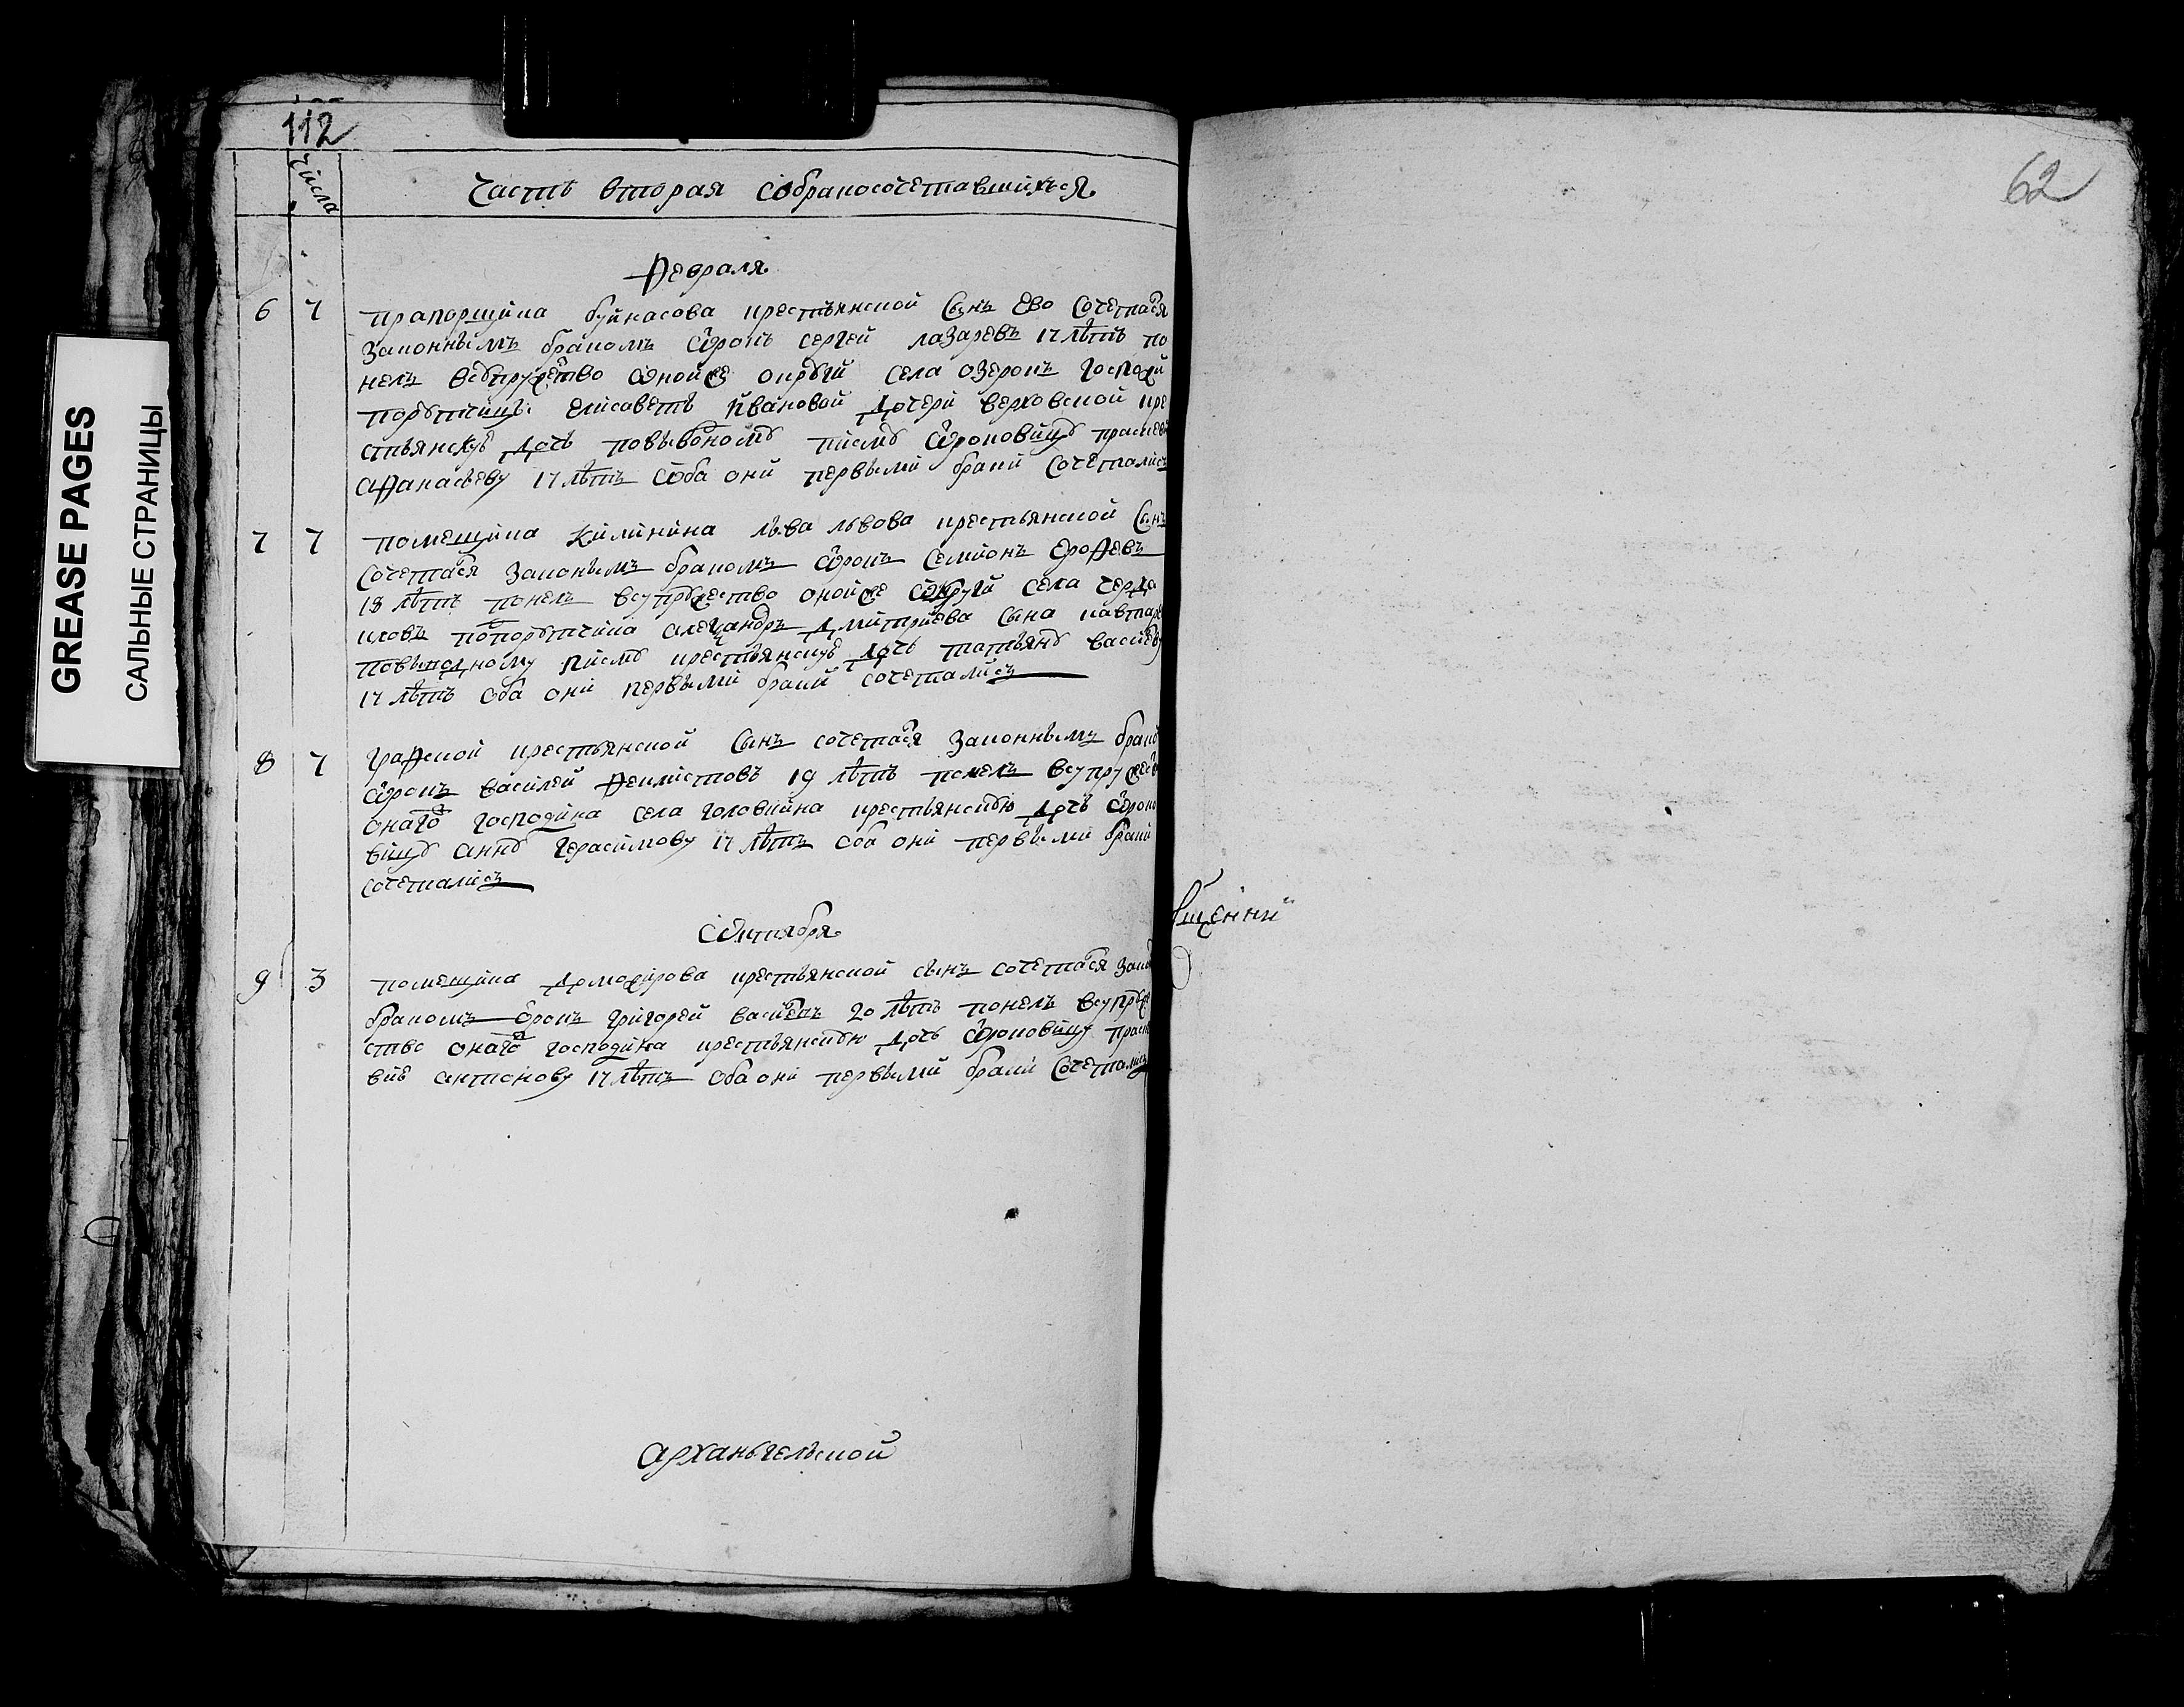 112
Числа
Часть вторая обракосочетавшихъся
Февраля
6 7 прапорщика буйкасова крестьянской Сынъ Ево Сочетался
Законнымъ бракомъ отрокъ сергей лазаревъ 17 лѣтъ по
нелъ всупружество оной же округи села озерокъ госпожи
порутчицы елисаветы Ивановой дочери верховской кре
стьянскую дочь повыводному писму отроковицу праскеву
афанасьеву 17 лѣтъ оба они первыми браки Сочетались
7 7 помещика Жилинина льва львова крестьянской Сынъ
Сочетался Законымъ бракомъ отрокъ Семионъ Ерофевъ
18 лѣтъ понелъ всупружество оной же округи села черка
ковъ Александръ дмитриева сына
повыводному писму крестьянскую дочь татьяну
17 лѣтъ оба они первыми браки сочетались
8 7 графской крестьянской Сынъ сочетался Законнымъ брако
отрокъ василей Феклистовъ 19 лѣтъ понелъ всупружес
онаго господина села головкина крестьянскую дочь отроко
вицу анну герасимову 17 лѣтъ оба они первыми браки
сочетались
Октября
9 3 помещика доможирова крестьянской сынъ сочетался Зако
бракомъ отрокъ григорей 20 лѣтъ понелъ всупруже
ство онаго господина крестьянскую дочь отроковицу праск
вию антонову 17 лѣтъ оба они первыми браки Сочетались
архангельской
62
GREASE PAGES
САЛЬНЫЕ СТРАНИЦЫ